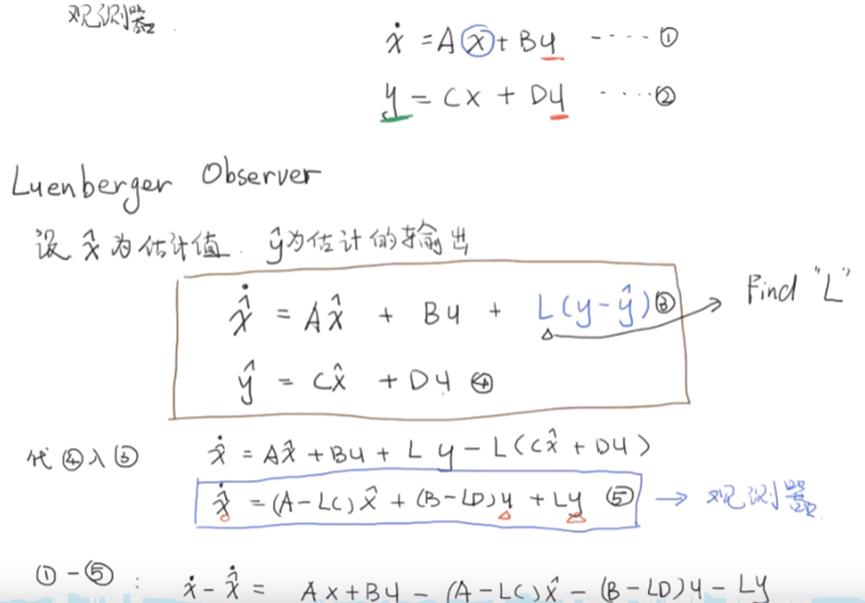 观测器.
ẋ = Ax + Bu ----- ①
y = Cx + Du ----- ②
Luenberger Observer
设 x̂ 为估计值. ŷ为估计的输出
x̂̇ = Ax̂ + Bu + L(y-ŷ) ③ → Find "L"
ŷ = Cx̂ + Du ④
代④入③ x̂̇ = Ax̂ + Bu + Ly - L(Cx̂ + Du)
x̂̇ = (A-LC)x̂ + (B-LD)u + Ly ⑤ → 观测器
①-⑤: ẋ - x̂̇ = Ax + Bu - (A-LC)x̂ - (B-LD)u - Ly